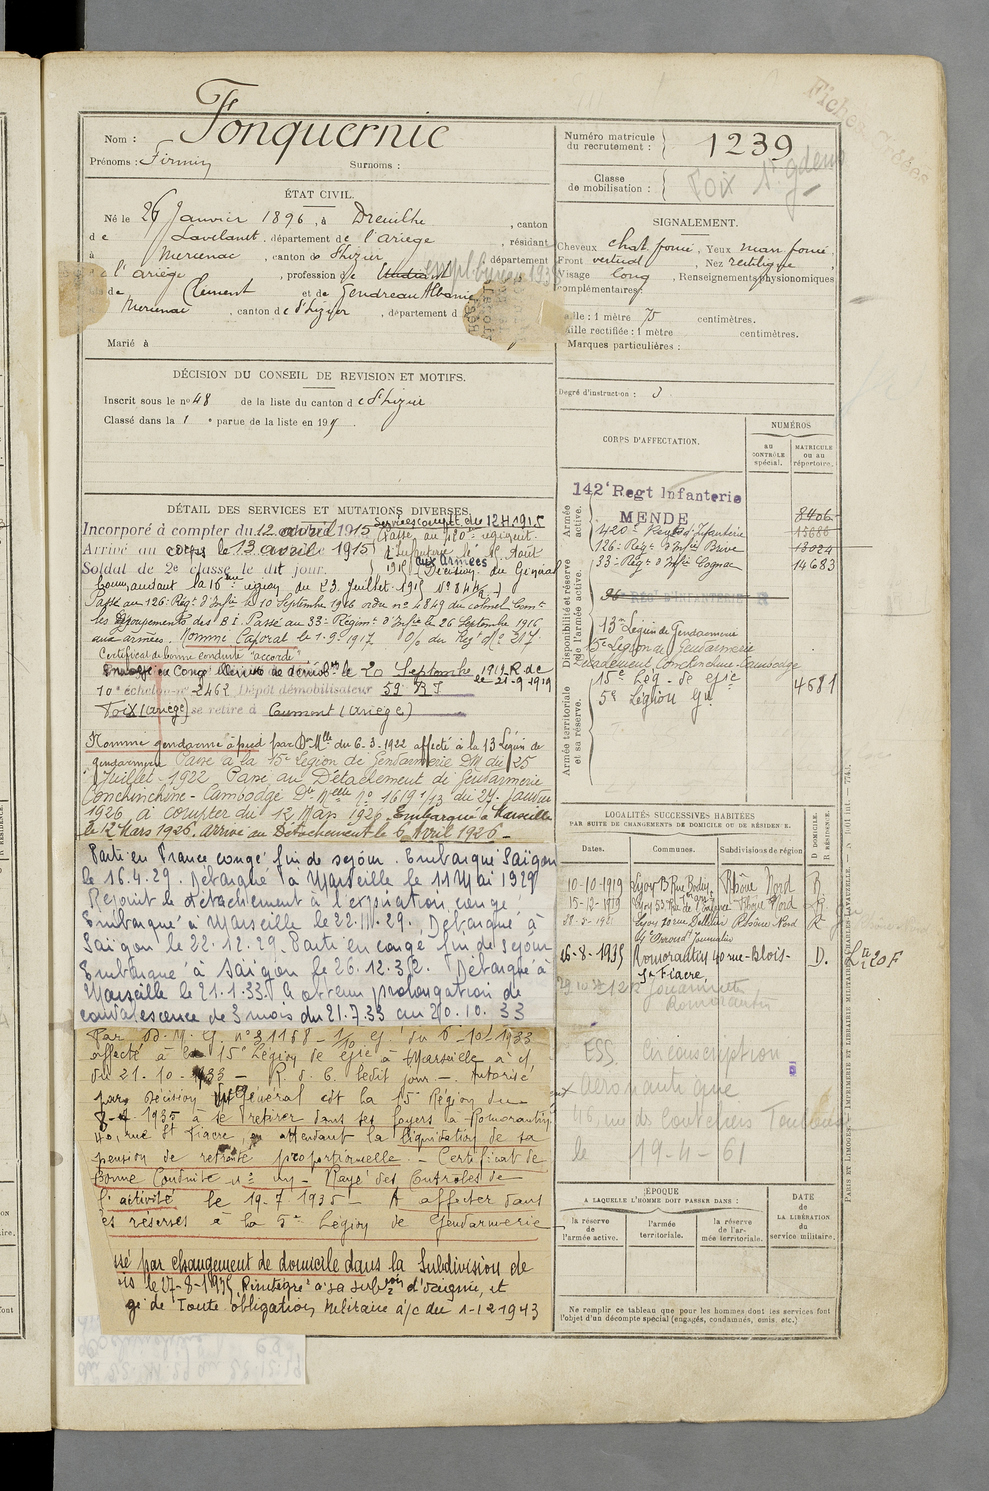 Fonquernie
Nom :
Prénoms : Firmin Surnoms :
ÉTAT CIVIL.
Né le 26 Janvier 1896, à Dreuilhe, canton
de Lavelanet, département de l'ariège, résidant
à Mercenac, canton de St Lizier département
de l'ariège, profession d'Etudiant empl. bureau 1939
de Clément et de Gendreau Albanie
Mercenac, canton de St Lizier, département d
Marié à
DÉCISION DU CONSEIL DE REVISION ET MOTIFS.
Inscrit sous le no 48 de la liste du canton de St Lizier
Classé dans la 1e partie de la liste en 191
DÉTAIL DES SERVICES ET MUTATIONS DIVERSES.
Incorporé à compter du 12 avril 1915 Services compt. du 12.4.1915
Arrivé au corps le 13 avril 1915 Passé au 420e régiment
Soldat de 2e classe le dit jour. d'Infanterie le 15 Août
1915 aux Armées (Décision du Général
Commandant la 16me région du 23 Juillet 1915 No
Passé au 126e Régt d'Infie le 10 Septembre 1916 ordre no 4849 du colonel Comt
les Groupements des D.I. Passé au 33e Régimt d'Infie le 26 Septembre 1916
aux armées. Nommé Caporal le 1-9-1917 O/ du Regt No 317
Certificat de bonne conduite "accordé"
en Congé illimité de démobon le 20 Septembre 1919 R.d.c.
le 21-9-1919
10e échelon no 2462 Dépôt démobilisateur 59e R I
Foix (ariège) se retire à Caumont (ariège)
Nommé gendarme à pied par Dn Mlle du 6.3.1922 affecté à la 13 Légion de
gendarmerie Passé à la 15e Légion de Gendarmerie DM du 25
Juillet 1922 Passé au Détachement de Gendarmerie
Conchinchine - Cambodge Dn Melle No 1619 1/13 du 27 Janvier
1926 à compter du 12 Mars 1926 Embarqué à Marseille
le 12 Mars 1926. arrivé au Détachement le 6 Avril 1926 -
Parti en France congé fin de séjour. Embarqué Saïgon
le 16.4.29. Débarqué à Marseille le 11 Mai 1929
Rejoint le détachement à l'expiration congé
Embarqué à Marseille le 22.11.29. Débarqué à
Saïgon le 22.12.29. Parti en congé fin de séjour
Embarqué à Saïgon le 26.12.32. Débarqué à
Marseille le 21.1.33. A obtenu prolongation de
convalescence de 3 mois du 21.7.33 au 20.10.33
Par D. M. G. no 31168 - 1/10 G. du 6-10-1933
affecté à la 15e Légion de Gie à Marseille à c/
du 21-10-1933 - R. d. C. ledit jour -. Autorisé
par décision du Général cdt la 15e Région du
8-4-1935 à se retirer dans ses foyers à Romorantin
40, rue St Fiacre, en attendant la liquidation de sa
pension de retraite proportionnelle. - Certificat de
bonne conduite - Rayé des Contrôles de
l'activité le 19-7-1935 - A affecter dans
les réserves à la 5e Légion de Gendarmerie
né par changement de domicile dans la Subdivision de
le 27-8-1935. Réintégré à sa subon d'origine, et
gé de Toute obligation Militaire à/c du 1-12-1943
Numéro matricule
du recrutement : 1239
Classe
de mobilisation :
Foix
SIGNALEMENT.
Cheveux chat. foncé, Yeux marr foncé,
Front vertical, Nez rectiligne,
Visage long, Renseignements physionomiques
complémentaires :
Taille : 1 mètre 75 centimètres.
Taille rectifiée : 1 mètre centimètres.
Marques particulières :
Degré d'instruction : 3
CORPS D'AFFECTATION.
NUMÉROS
au
CONTRÔLE
spécial.
MATRICULE
ou au
répertoire.
Armée
active.
142e Regt Infanterie
MENDE 8406
420e Regt d'Infanterie 15686
126e Régt d'Infie Brive 13024
33e Régt d'Infie Cognac 14683
Disponibilité et réserve
de l'armée active.
13e Légion de Gendarmerie
15e Légion de Gendarmerie
Détachement Conchinchine-Cambodge
15e Lég. de Gie 4681
5e Légion Gie
Armée territoriale
et sa réserve.
LOCALITÉS SUCCESSIVES HABITÉES
PAR SUITE DE CHANGEMENTS DE DOMICILE OU DE RÉSIDENCE.
Dates. Communes. Subdivisions de région
D DOMICILE.
R RÉSIDENCE.
10-10-1919 Lyon 13 Rue Bodin Rhône Nord R.
15-12-1919 Lyon 53 Rue de Rhône Nord R.
Lyon 20 rue Rhône Nord R
26-8-1935 Romorantin 40 rue - Blois - D.
St Fiacre,
Romorantin
ESS Circonscription
Aéronautique
46, rue des Couteliers Toulouse
le 19-4-61
ÉPOQUE
A LAQUELLE L'HOMME DOIT PASSER DANS :
la réserve
de l'armée active.
l'armée
territoriale.
la réserve
de l'ar-
mée territoriale.
DATE
de
LA LIBÉRATION
du
service militaire.
Ne remplir ce tableau que pour les hommes dont les services font
l'objet d'un décompte spécial (engagés, condamnés, omis, etc.)